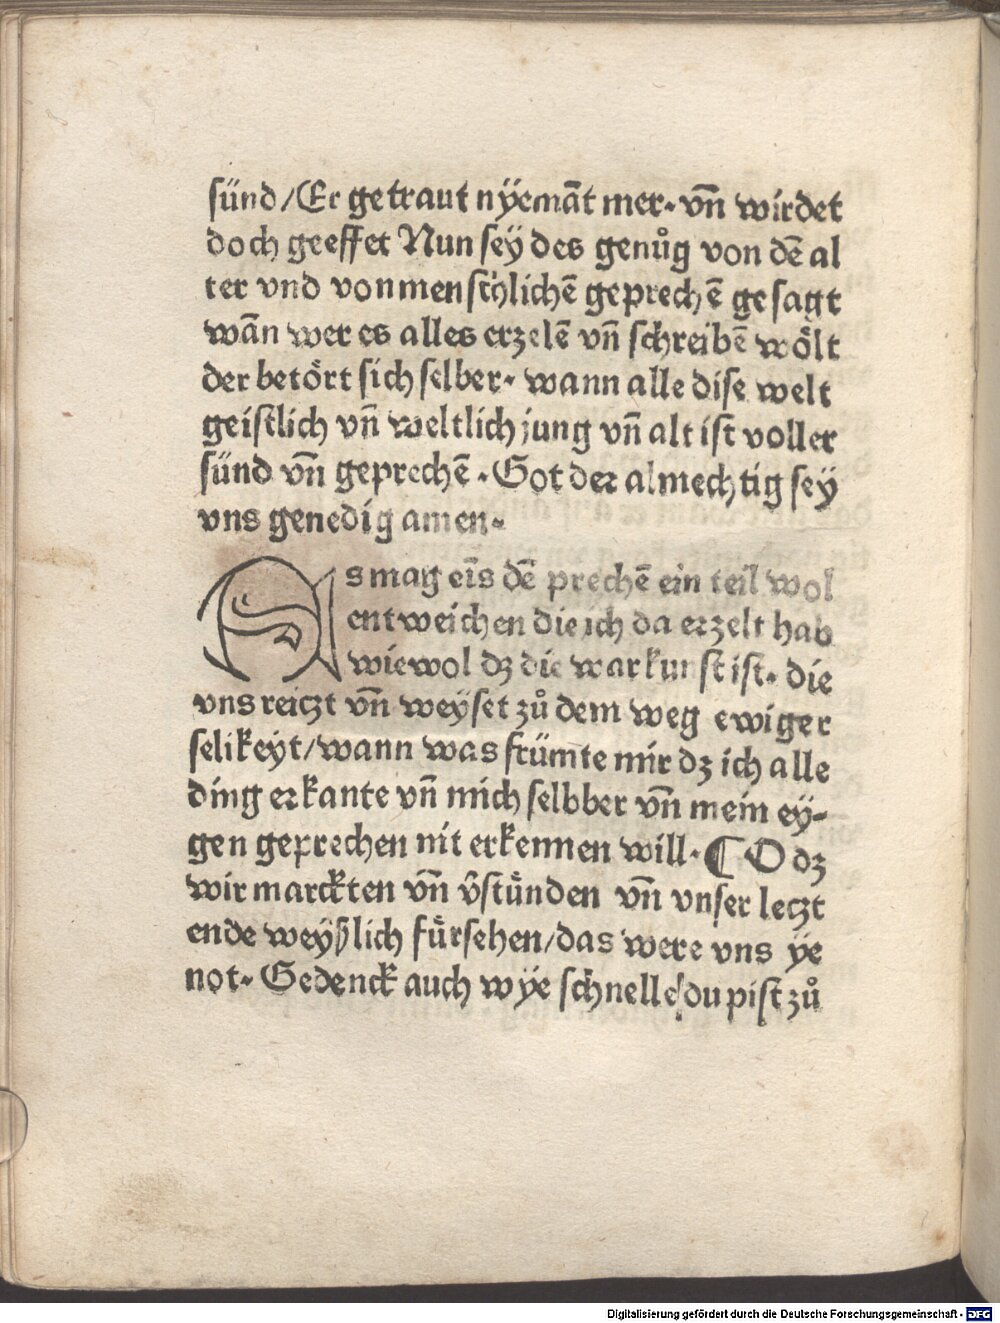 sünd/Er getraut nÿemāt mer· vn̄ wirdet
doch geeffet Nun seÿ des genůg von dē al
ter vnd von menschlichē geprechē gesagt
wān wer es alles erzelē vn̄ schreibē wölt
der betört sich selber· wann alle dise welt
geistlich vn̄ weltlich jung vn̄ alt ist voller
sünd vn̄ geprechē·Got der almechtig seÿ
vns genedig amen·
Es mag eīs dē prechē ein teil wol
entweichen die ich da erzelt hab
wiewol dz die war kunst ist· die
vns reitzt vn̄ weÿset zů dem weg ewiger
selikeÿt/wann was frümte mir dz ich alle
ding erkante vn̄ mich selbber vn̄ mein eÿ-
gen geprechen nit erkennen will·¶ O dz
wir marckten vn̄ v̄stünden vn̄ vnser letzt
ende weÿßlich fürsehen/das were vns ÿe
not· Gedenck auch wÿe schnelle du pist zů
Digitalisierung gefördert durch die Deutsche Forschungsgemeinschaft - DFG